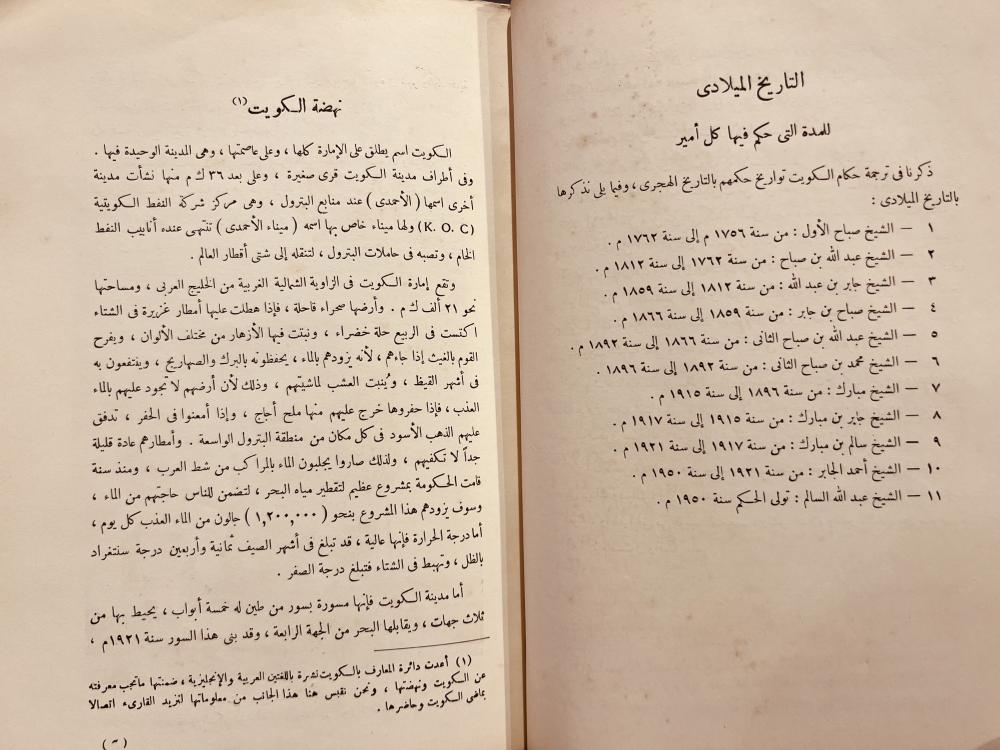 التاريخ الميلادى
للمدة التى حكم فيها كل أمير
ذكرنا فى ترجمة حكام السكويت تواريخ حكمهم بالتاريخ الهجرى ، وفيما يلى نذكرها
بالتاريخ الميلادى :
١ — الشيخ صباح الأول : من سنة ١٧٥٦ م إلى سنة ١٧٦٢ م .
٢ — الشيخ عبد الله بن صباح : من سنة ١٧٦٢ إلى سنة ١٨١٢ م .
٣ — الشيخ جابر بن عبد الله : من سنة ١٨١٢ إلى سنة ١٨٥٩ م .
٤ — الشيخ صباح بن جابر : من سنة ١٨٥٩ إلى سنة ١٨٦٦ م .
٥ — الشيخ عبد الله بن صباح الثانى : من سنة ١٨٦٦ إلى سنة ١٨٩٢ م .
٦ — الشيخ محمد بن صباح الثانى : من سنة ١٨٩٢ إلى سنة ١٨٩٦ .
٧ — الشيخ مبارك : من سنة ١٨٩٦ إلى سنة ١٩١٥ م .
٨ — الشيخ جابر بن مبارك : من سنة ١٩١٥ إلى سنة ١٩١٧ م .
٩ — الشيخ سالم بن مبارك : من سنة ١٩١٧ إلى سنة ١٩٢١ م .
١٠ — الشيخ أحمد الجابر : من سنة ١٩٢١ إلى سنة ١٩٥٠ م .
١١ — الشيخ عبد الله السالم : تولى الحكم سنة ١٩٥٠ م .
نهضة الكويت (١)
الكويت اسم يطلق على الإمارة كلها ، وعلى عاصمتها ، وهى المدينة الوحيدة فيها .
وفى أطراف مدينة الكويت قرى صغيرة ، وعلى بعد ٣٦ ك م منها نشأت مدينة
أخرى اسمها ( الأحمدى ) عند منابع البترول ، وهى مركز شركة النفط الكويتية
(K. O. C) ولها ميناء خاص بها اسمه ( ميناء الأحمدى ) تنتهى عنده أنابيب النفط
الخام ، وتصبه فى حاملات البترول ، لتنقله إلى شتى أقطار العالم .
وتقع إمارة الكويت فى الزاوية الشمالية الغربية من الخليج العربى ، ومساحتها
نحو ٢١ ألف ك م . وأرضها صحراء قاحلة ، فإذا هطلت عليها أمطار غزيرة فى الشتاء
اكتست فى الربيع حلة خضراء ، ونبتت فيها الأزهار من مختلف الألوان ، ويفرح
القوم بالغيث إذا جاءهم ، لأنه يزودهم بالماء ، يحفظونه بالبرك والصهاريج ، وينتفعون به
فى أشهر القيظ ، ويُنبت العشب لماشيتهم ، وذلك لأن أرضهم لا تجود عليهم بالماء
العذب ، فإذا حفروها خرج عليهم منها ملح أجاج ، وإذا أمعنوا فى الحفر ، تدفق
عليهم الذهب الأسود فى كل مكان من منطقة البترول الواسعة . وأمطارهم عادة قليلة
جداً لا تكفيهم ، ولذلك صاروا يجلبون الماء بالمراكب من شط العرب ، ومنذ سنة
قامت الحكومة بمشروع عظيم لتقطير مياه البحر ، لتضمن للناس حاجتهم من الماء ،
وسوف يزودهم هذا المشروع بنحو ( ١,٢٠٠,٠٠٠ ) جالون من الماء العذب كل يوم ،
أما درجة الحرارة فإنها عالية ، قد تبلغ فى أشهر الصيف ثمانية وأربعين درجة سنتغراد
بالظل ، وتهبط فى الشتاء فتبلغ درجة الصفر .
أما مدينة الكويت فإنها مسورة بسور من طين له خمسة أبواب ، يحيط بها من
ثلاث جهات ، ويقابلها البحر من الجهة الرابعة ، وقد بنى هذا السور سنة ١٩٢١م ،
(١) أعدت دائرة المعارف بالكويت نشرة باللغتين العربية والإنجليزية ، ضمنتها ما تجب معرفته
عن الكويت ونهضتها ، ونحن نقبس هنا هذا الجانب من معلوماتها لنزيد القارىء اتصالا
بماضى الكويت وحاضرها .